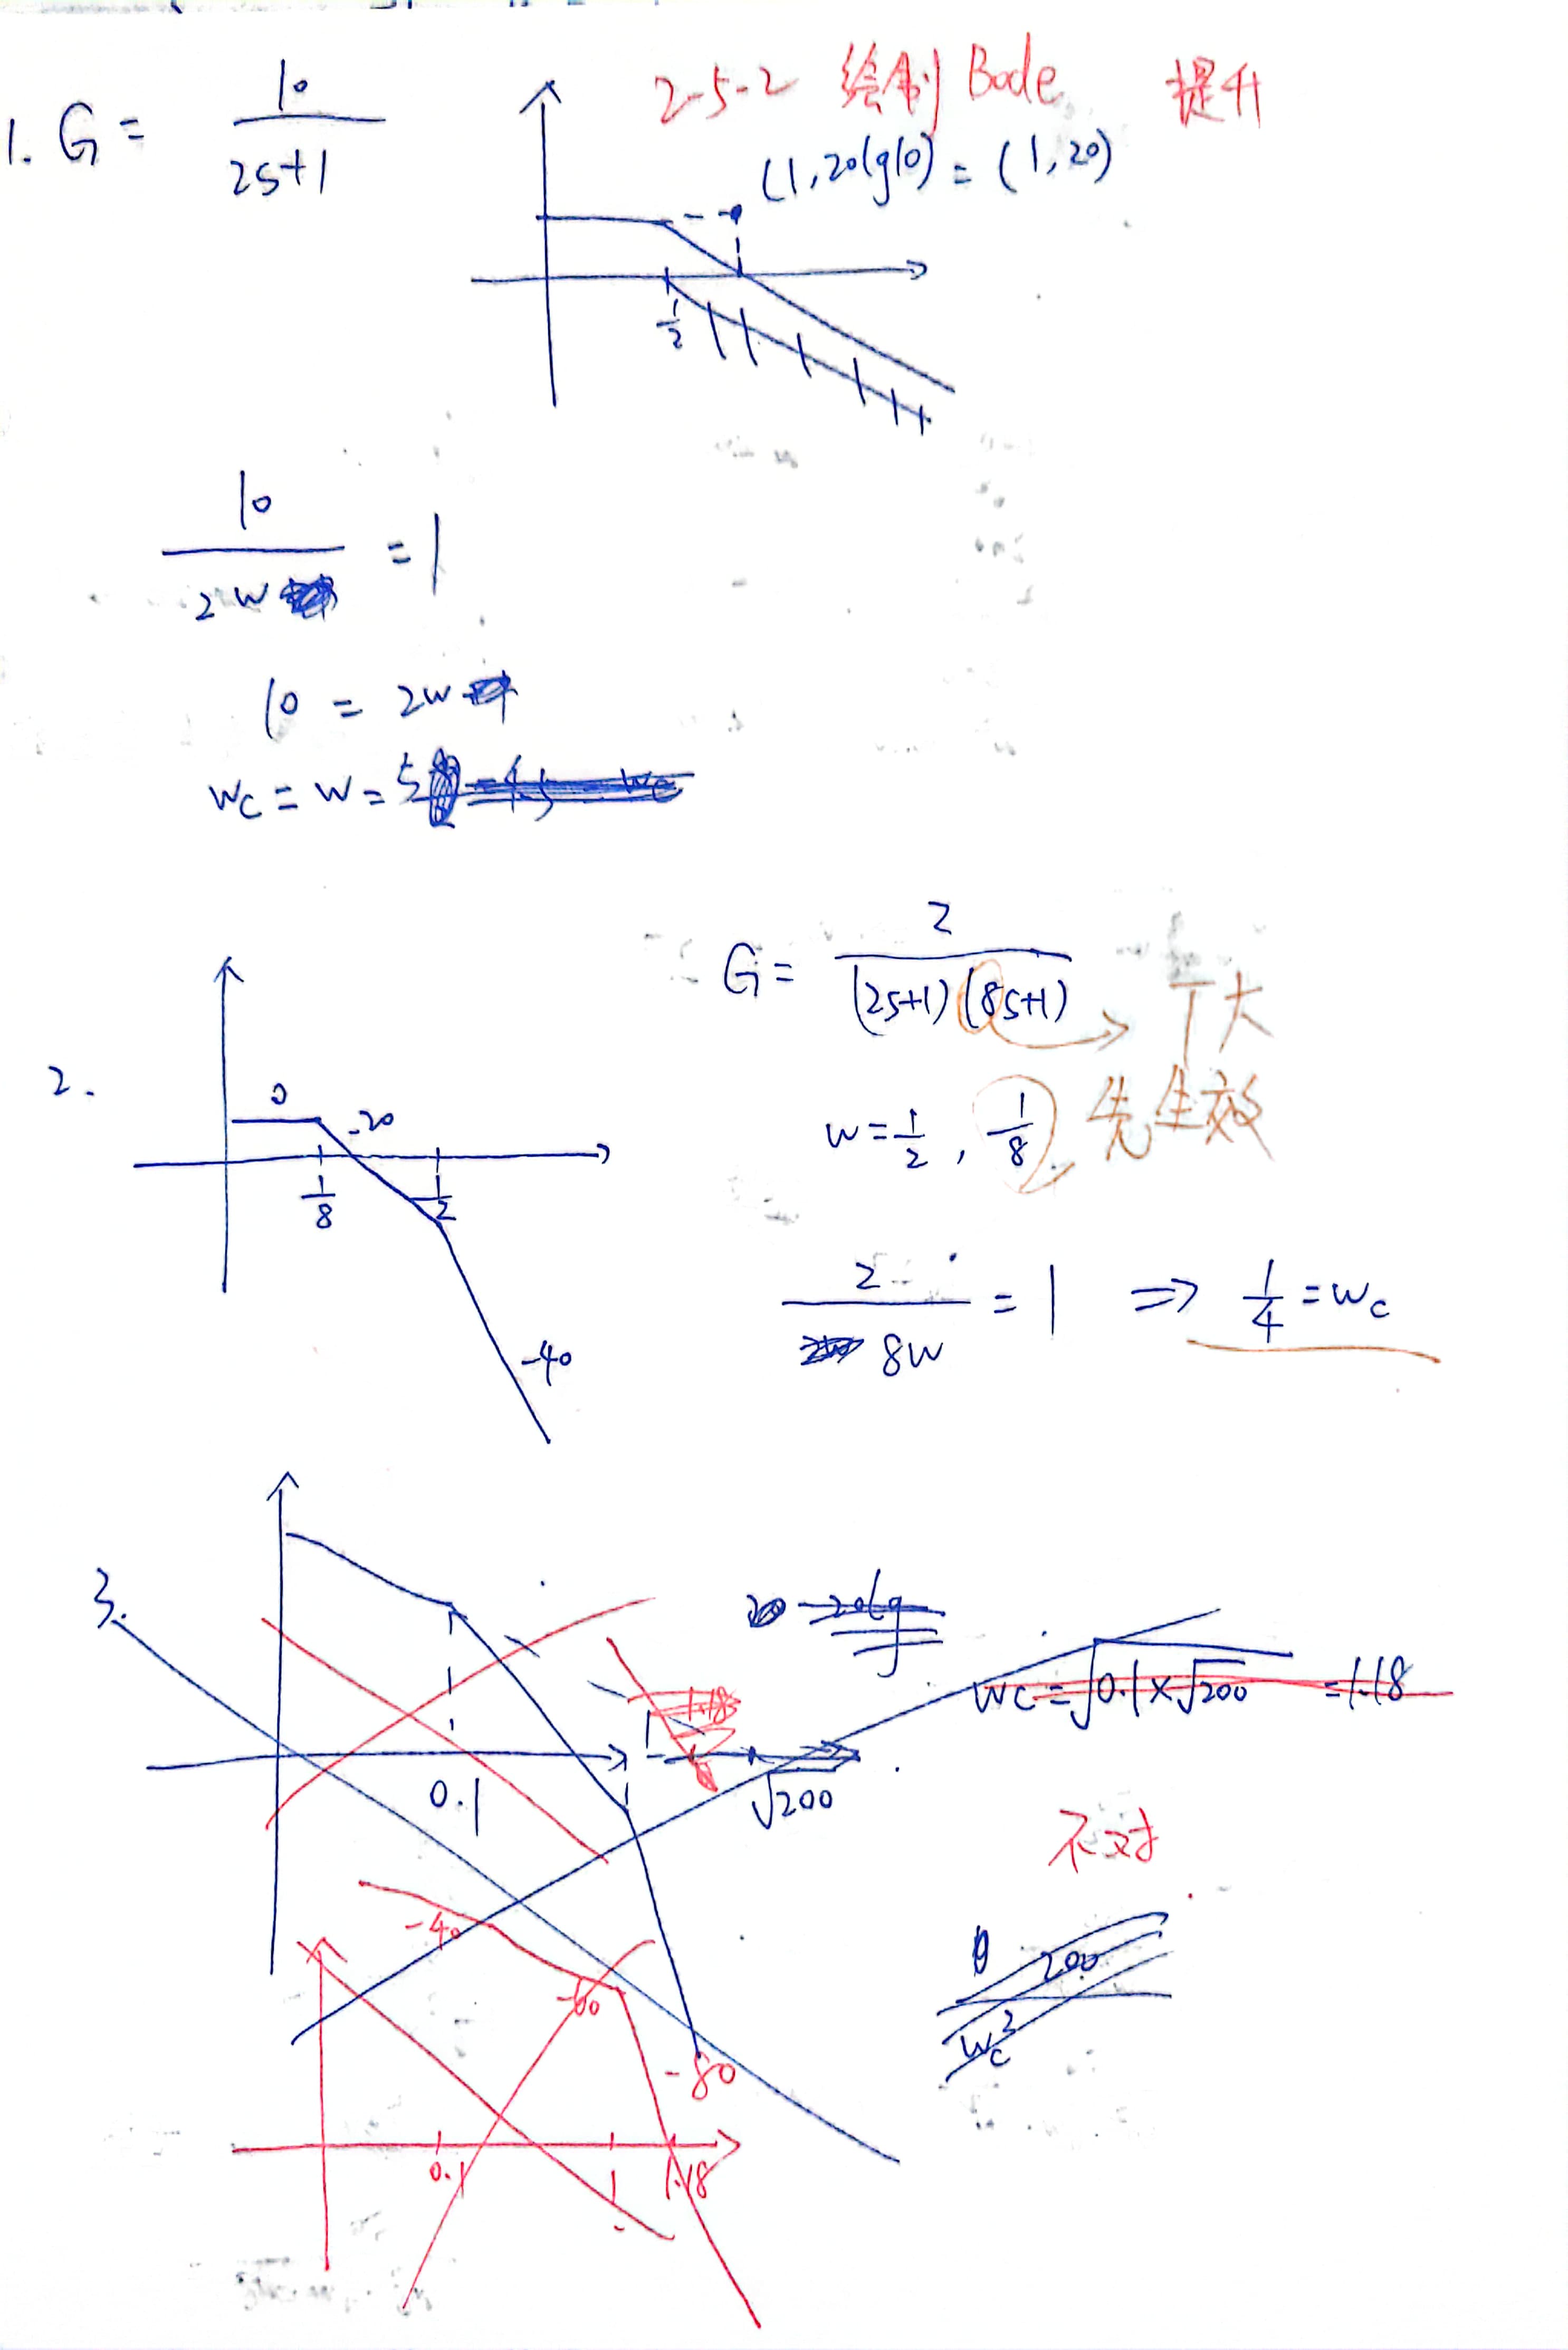 2-5-2 绘制 Bode 提升
1. G = 10 / (2s+1)
(1, 20lg10) = (1, 20)
1/2
10 / 2w = 1
10 = 2w
wc = w = 5
2.
0
-20
1/8
1/2
-40
G = 2 / ((2s+1)(8s+1))
T大
w = 1/2, 1/8
先生效
2 / 8w = 1 ⇒ 1/4 = wc
3.
20 - 20lg
wc = √(0.1×√200) = 1.18
1.18
0.1
1
√200
不对
200
wc²
-40
-60
-80
0.1
1
1.18